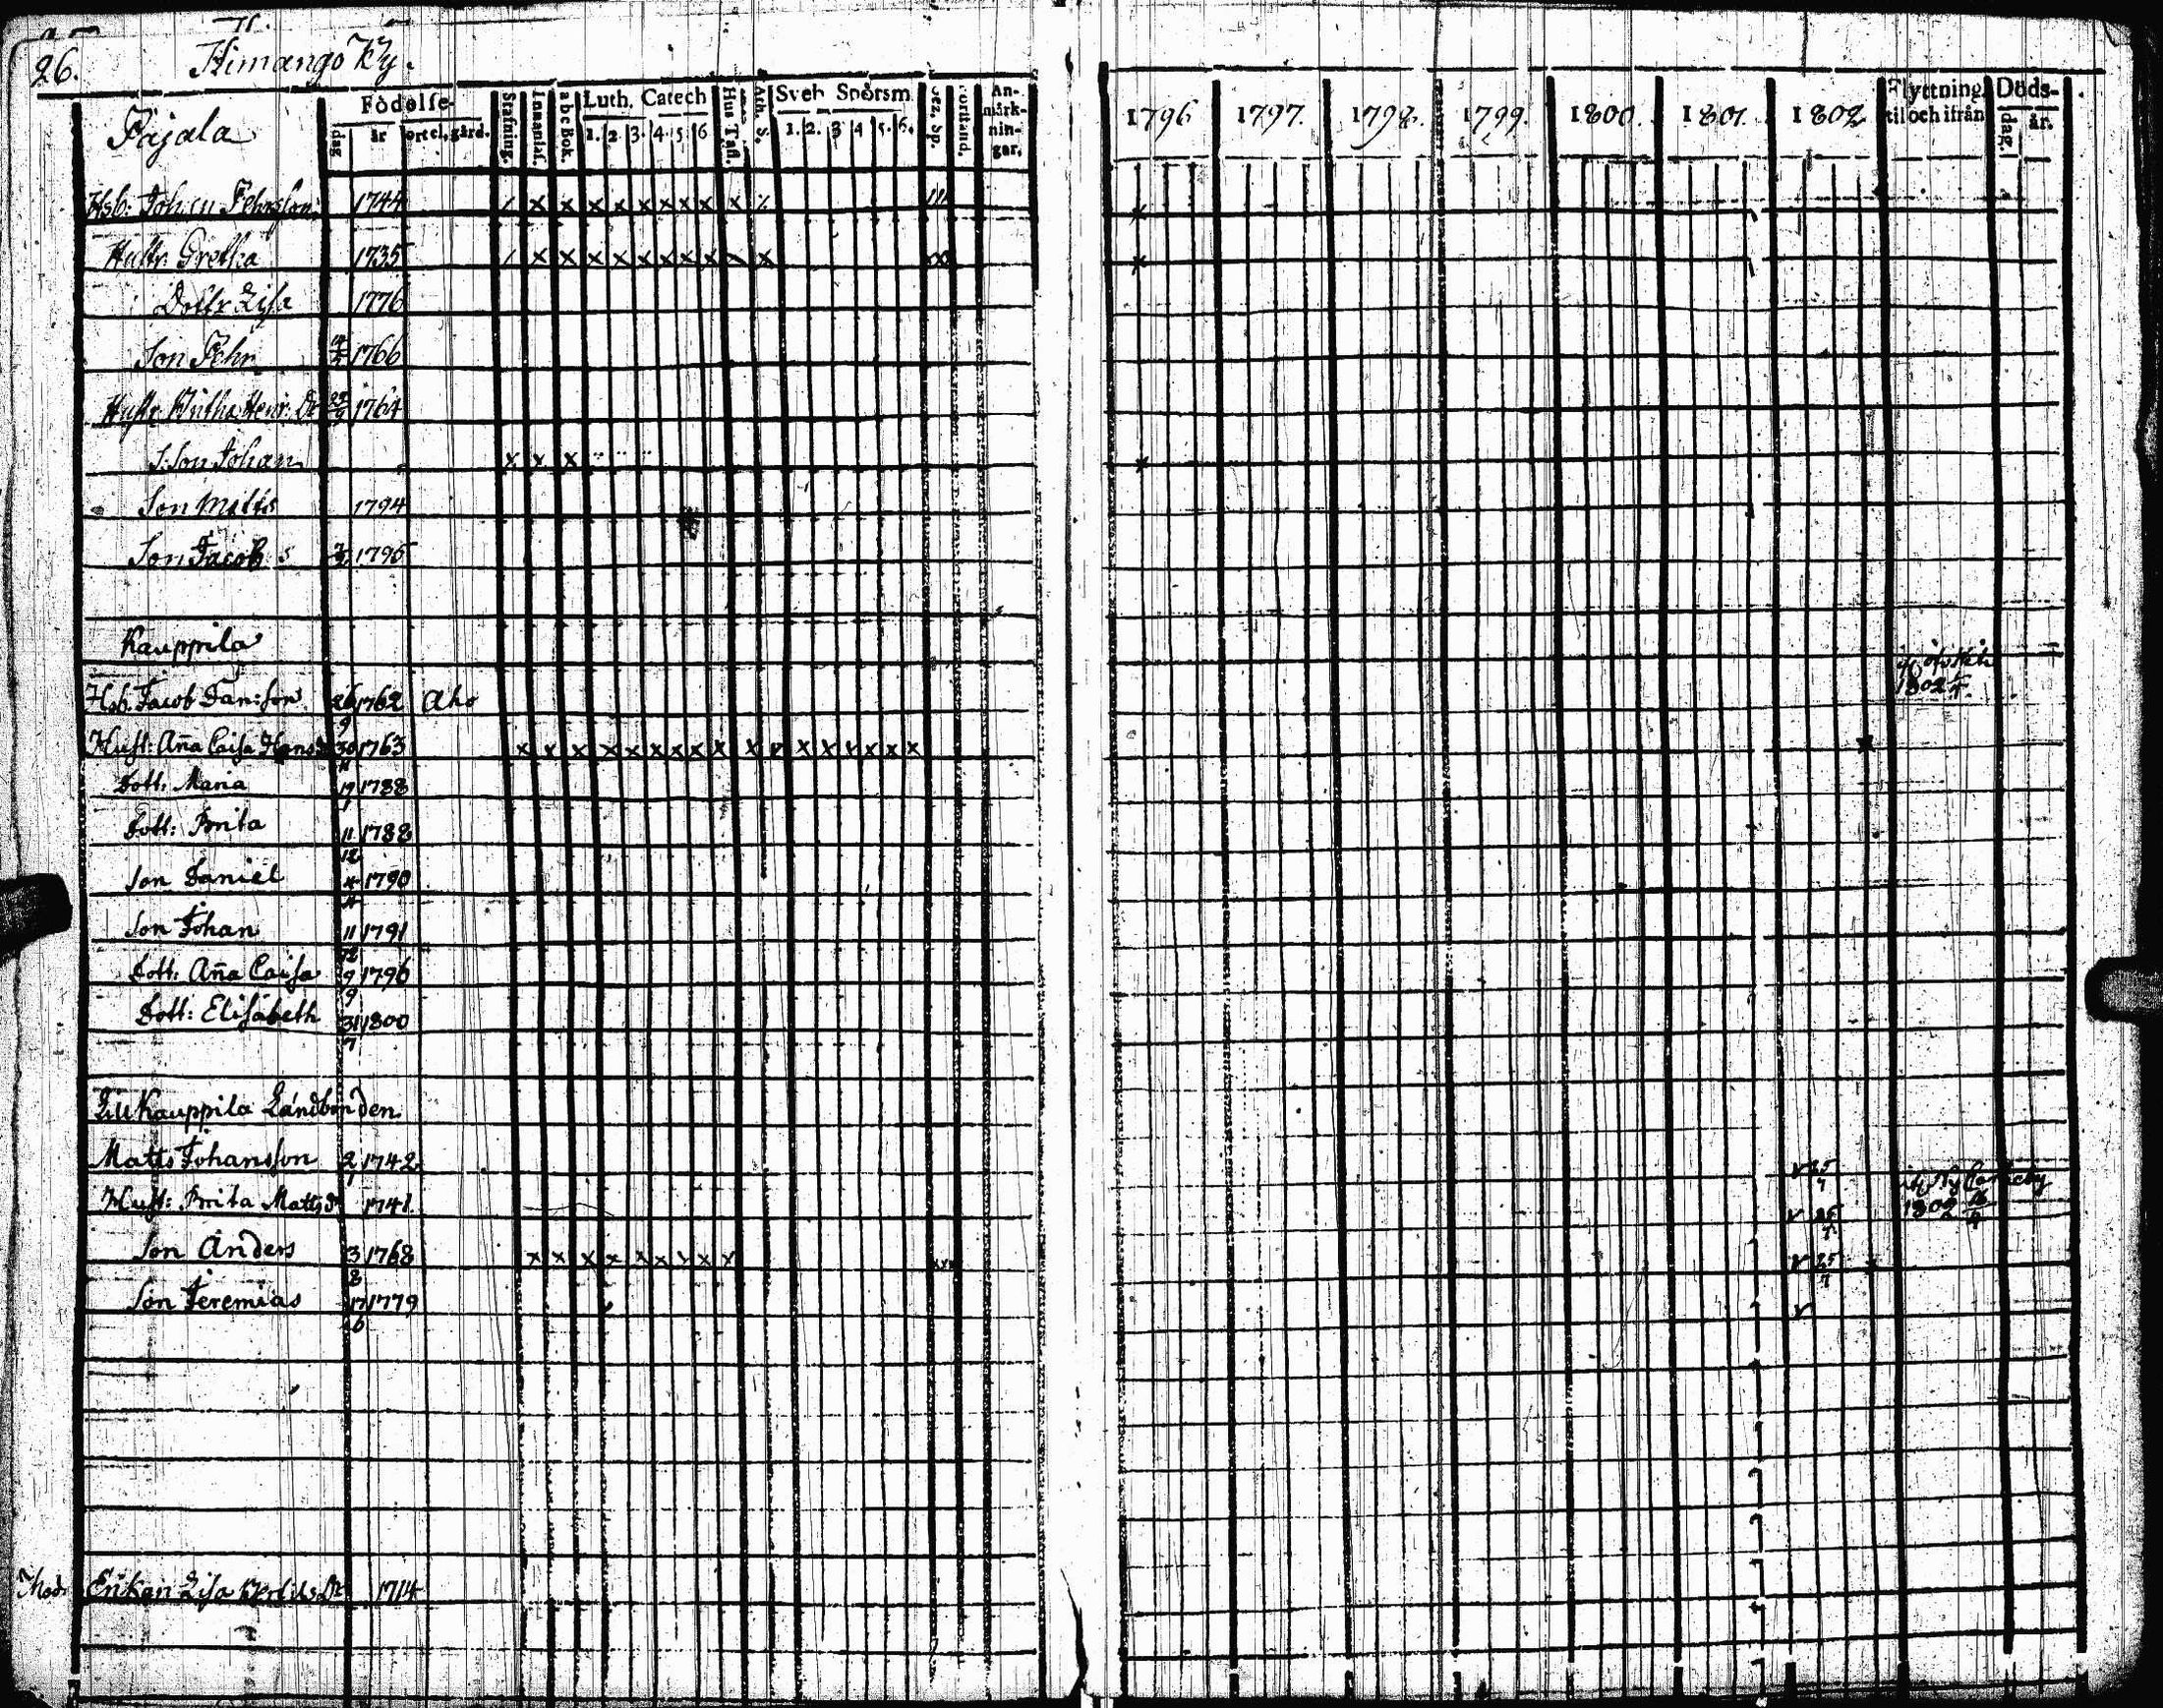 26. Himango By.
Pajala
Födelse-
dag år ort el. gård.
Stafning. Innanläs. a b c Bok. Luth. Catech 1. 2. 3. 4. 5 6 Hus Tafl. Ath. S. Sveb. Spörsm. 1. 2. 3 4 5. 6. Förstånd. An-märk-nin-gar.
1796 1797. 1798. 1799. 1800. 1801. 1802 Flyttning. til och ifrån Döds- dag. år.
Hsb. Johan Pehrsson 1744
Hustr. Gretha 1735
Dottr Lisa 1776
Son Pehr 1766
Hustr. Britha Henr. Dr 1764
S. Son Johan
Son Matts 1794
Son Jacob 1795
Kauppila
Hsb. Jacob Danisson 26/9 1762 Aho
Hust: Aña Caisa Hansd 30/11 1763
Dott: Maria 17/1 1788
Dott: Brita 11/12 1788
Son Daniel 4/4 1790
Son Johan 11/12 1791
Dott: Aña Caisa 9/9 1796
Dott: Elisabeth 31/7 1800
Lill Kauppila Landbonden.
Matts Johansson 2/1 1742 25/4
Hust: Brita Mattsdr 1741. 25/4 1802
Son Anders 3/8 1768 25/4
Son Jeremias 17/6 1779
Enkan Lisa Bertilsdr 1714